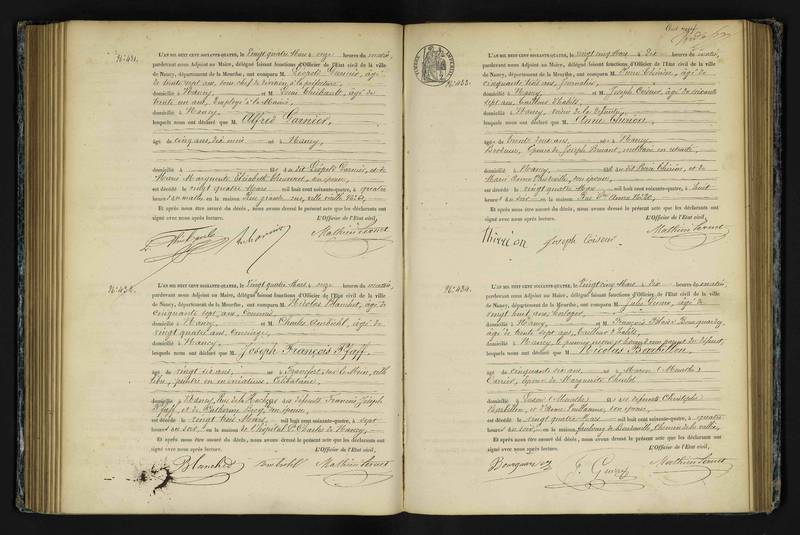 N.° 431.
L'AN MIL HUIT CENT SOIXANTE-QUATRE, le Vingt quatre Mars à onze heures du matin,
pardevant nous Adjoint au Maire, délégué faisant fonctions d'Officier de l'Etat civil de la ville
de Nancy, département de la Meurthe, ont comparu M. Léopold Garnier, âgé
de trente sept ans, sous chef de division à la préfecture,
domicilié à Nancy, et M. Louis Thiébault, âgé de
trente un ans, Employé à la Mairie,
domicilié à Nancy,
lesquels nous ont déclaré que M. Alfred Garnier,
âgé de cinq ans, dix mois né à Nancy,
domicilié à fils du dit Léopold Garnier, et de
Marie Marguerite Elisabeth son épouse,
est décédé le vingt quatre Mars mil huit cent soixante-quatre, à quatre
heures du matin en la maison rue grande rue, ville vieille N.°
Et après nous être assuré du décès, nous avons dressé le présent acte que les déclarants ont
signé avec nous après lecture. L'Officier de l'Etat civil,
N.° 432.
L'AN MIL HUIT CENT SOIXANTE-QUATRE, le Vingt quatre Mars à onze heures du matin,
pardevant nous Adjoint au Maire, délégué faisant fonctions d'Officier de l'Etat civil de la ville
de Nancy, département de la Meurthe, ont comparu M. Nicolas Blanchet, âgé de
cinquante sept ans, Commis
domicilié à Nancy, et M. Charles âgé de
vingt quatre ans, Concierge,
domicilié à Nancy,
lesquels nous ont déclaré que M. Joseph François Pfaff,
âgé de vingt six ans, né à Francfort sur le Mein, ville
libre, peintre en miniature, Célibataire,
domicilié à Nancy, rue de la fils des défunts François Joseph
Pfaff, et de Catherine son épouse,
est décédé le vingt trois Mars, mil huit cent soixante-quatre, à sept
heures du soir, en la maison de l'hôpital S.t Charles de Nancy.
Et après nous être assuré du décès, nous avons dressé le présent acte que les déclarants ont
signé avec nous après lecture. L'Officier de l'Etat civil,
Blanchet
N.° 433.
L'AN MIL HUIT CENT SOIXANTE-QUATRE, le vingt cinq Mars à dix heures du matin,
pardevant nous Adjoint au Maire, délégué faisant fonctions d'Officier de l'Etat civil de la ville
de Nancy, département de la Meurthe, ont comparu M. Pierre Thirion, âgé de
cinquante trois ans, journalier,
domicilié à Nancy, et M. Joseph Coiseur, âgé de soixante
sept ans, tailleur d'habits,
domicilié à Nancy, voisin de la défunte,
lesquels nous ont déclaré que M. Anne Thirion,
âgée de trente deux ans, née à Nancy
Brodeuse, épouse de Joseph militaire en retraite,
domiciliée à Nancy, fille du dit Pierre Thirion, et de
Marie Anne son épouse,
est décédée le vingt quatre Mars mil huit cent soixante-quatre, à huit
heures du soir en la maison Rue S.te Anne N.°
Et après nous être assuré du décès, nous avons dressé le présent acte que les déclarants ont
signé avec nous après lecture. L'Officier de l'Etat civil,
Thirion Joseph Coiseur
N.° 434.
L'AN MIL HUIT CENT SOIXANTE-QUATRE, le Vingt cinq Mars à dix heures du matin,
pardevant nous Adjoint au Maire, délégué faisant fonctions d'Officier de l'Etat civil de la ville
de Nancy, département de la Meurthe, ont comparu M. Jules âgé de
vingt huit ans, horloger,
domicilié à Nancy, et M. François
âgé de trente sept ans, tailleur d'habits,
domicilié à Nancy, le premier neveu et second non parent du défunt,
lesquels nous ont déclaré que M. Nicolas Barbillon,
âgé de cinquante six ans, né à Maron (Meurthe)
Carrier, époux de Marguerite
domicilié à (Meurthe) fils des défunts Christophe
Barbillon, et d'Anne son épouse,
est décédé le vingt quatre Mars mil huit cent soixante-quatre, à quatre
heures du soir, en la maison faubourg de
Et après nous être assuré du décès, nous avons dressé le présent acte que les déclarants ont
signé avec nous après lecture. L'Officier de l'Etat civil,